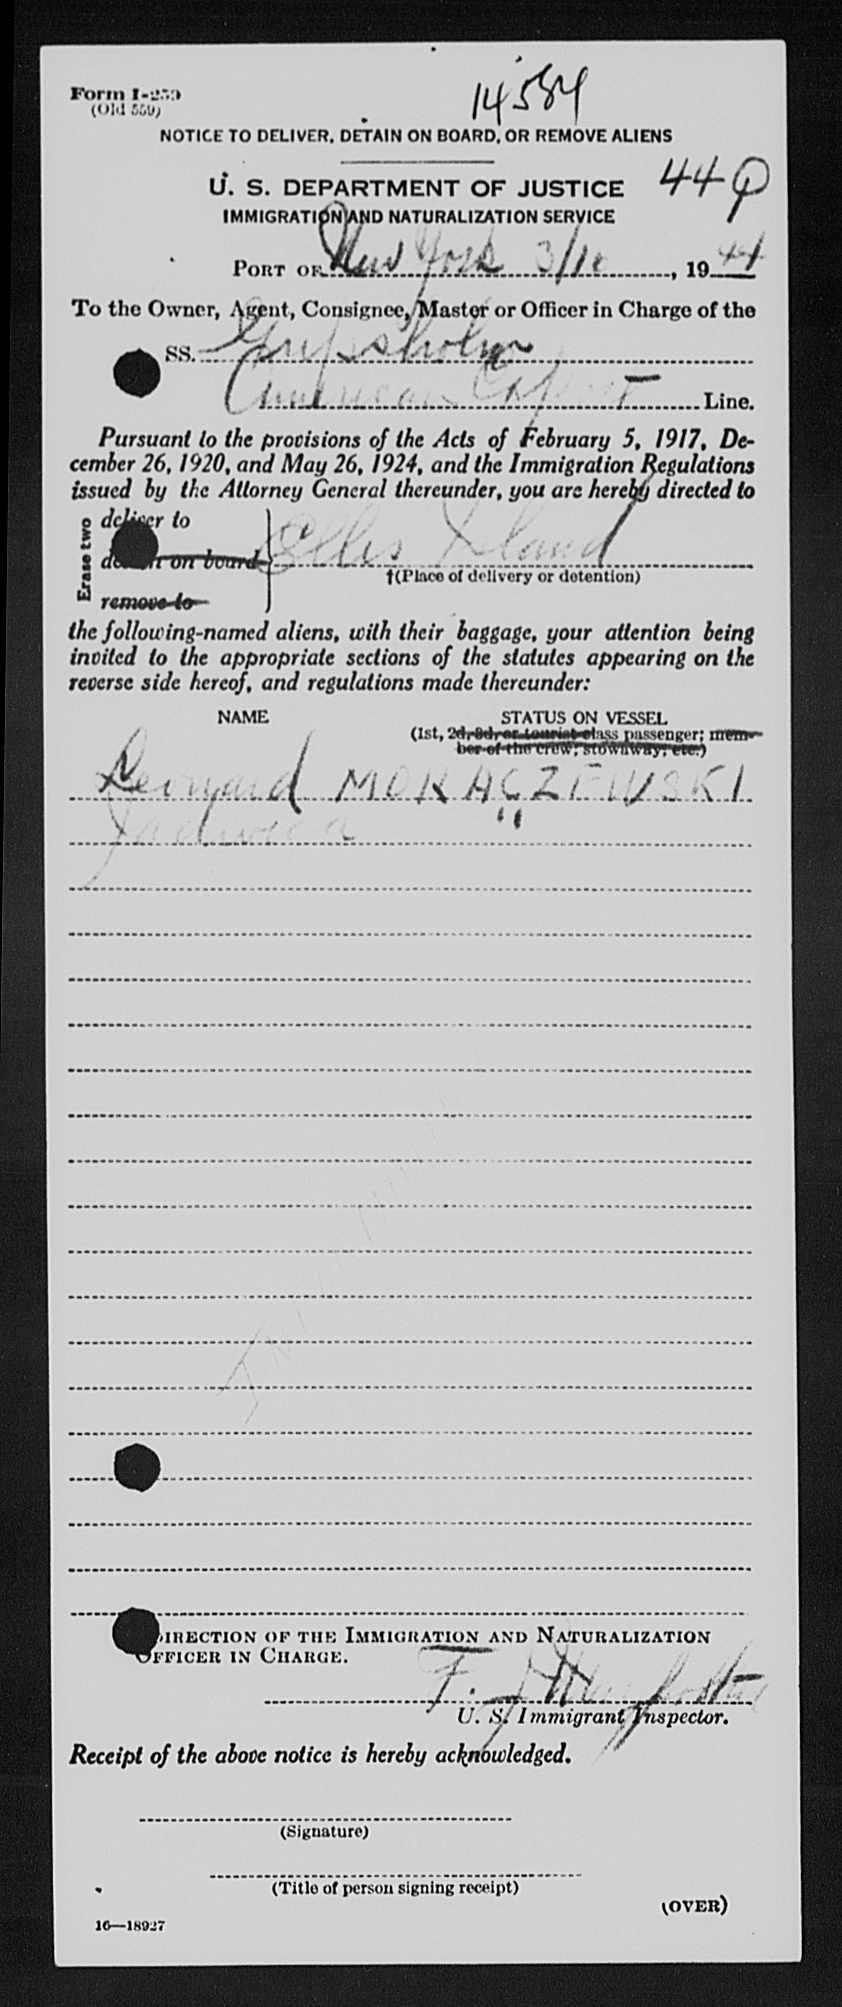 Form I-259
(Old 559)
14584
NOTICE TO DELIVER, DETAIN ON BOARD, OR REMOVE ALIENS
44
U. S. DEPARTMENT OF JUSTICE
IMMIGRATION AND NATURALIZATION SERVICE
PORT OF New York 3/1 , 1944
To the Owner, Agent, Consignee, Master or Officer in Charge of the
SS. Gripsholm
American Export Line.
Pursuant to the provisions of the Acts of February 5, 1917, De-
cember 26, 1920, and May 26, 1924, and the Immigration Regulations
issued by the Attorney General thereunder, you are hereby directed to
Erase two
deliver to
detain on board
remove to
Ellis Island
†(Place of delivery or detention)
the following-named aliens, with their baggage, your attention being
invited to the appropriate sections of the statutes appearing on the
reverse side hereof, and regulations made thereunder:
NAME STATUS ON VESSEL
(1st, 2d, 3d, or tourist class passenger; mem-
ber of the crew; stowaway; etc.)
MORACZEWSKI
Jadwiga "
DIRECTION OF THE IMMIGRATION AND NATURALIZATION
OFFICER IN CHARGE.
F.
U. S. Immigrant Inspector.
Receipt of the above notice is hereby acknowledged.
(Signature)
(Title of person signing receipt)
(OVER)
16—18927